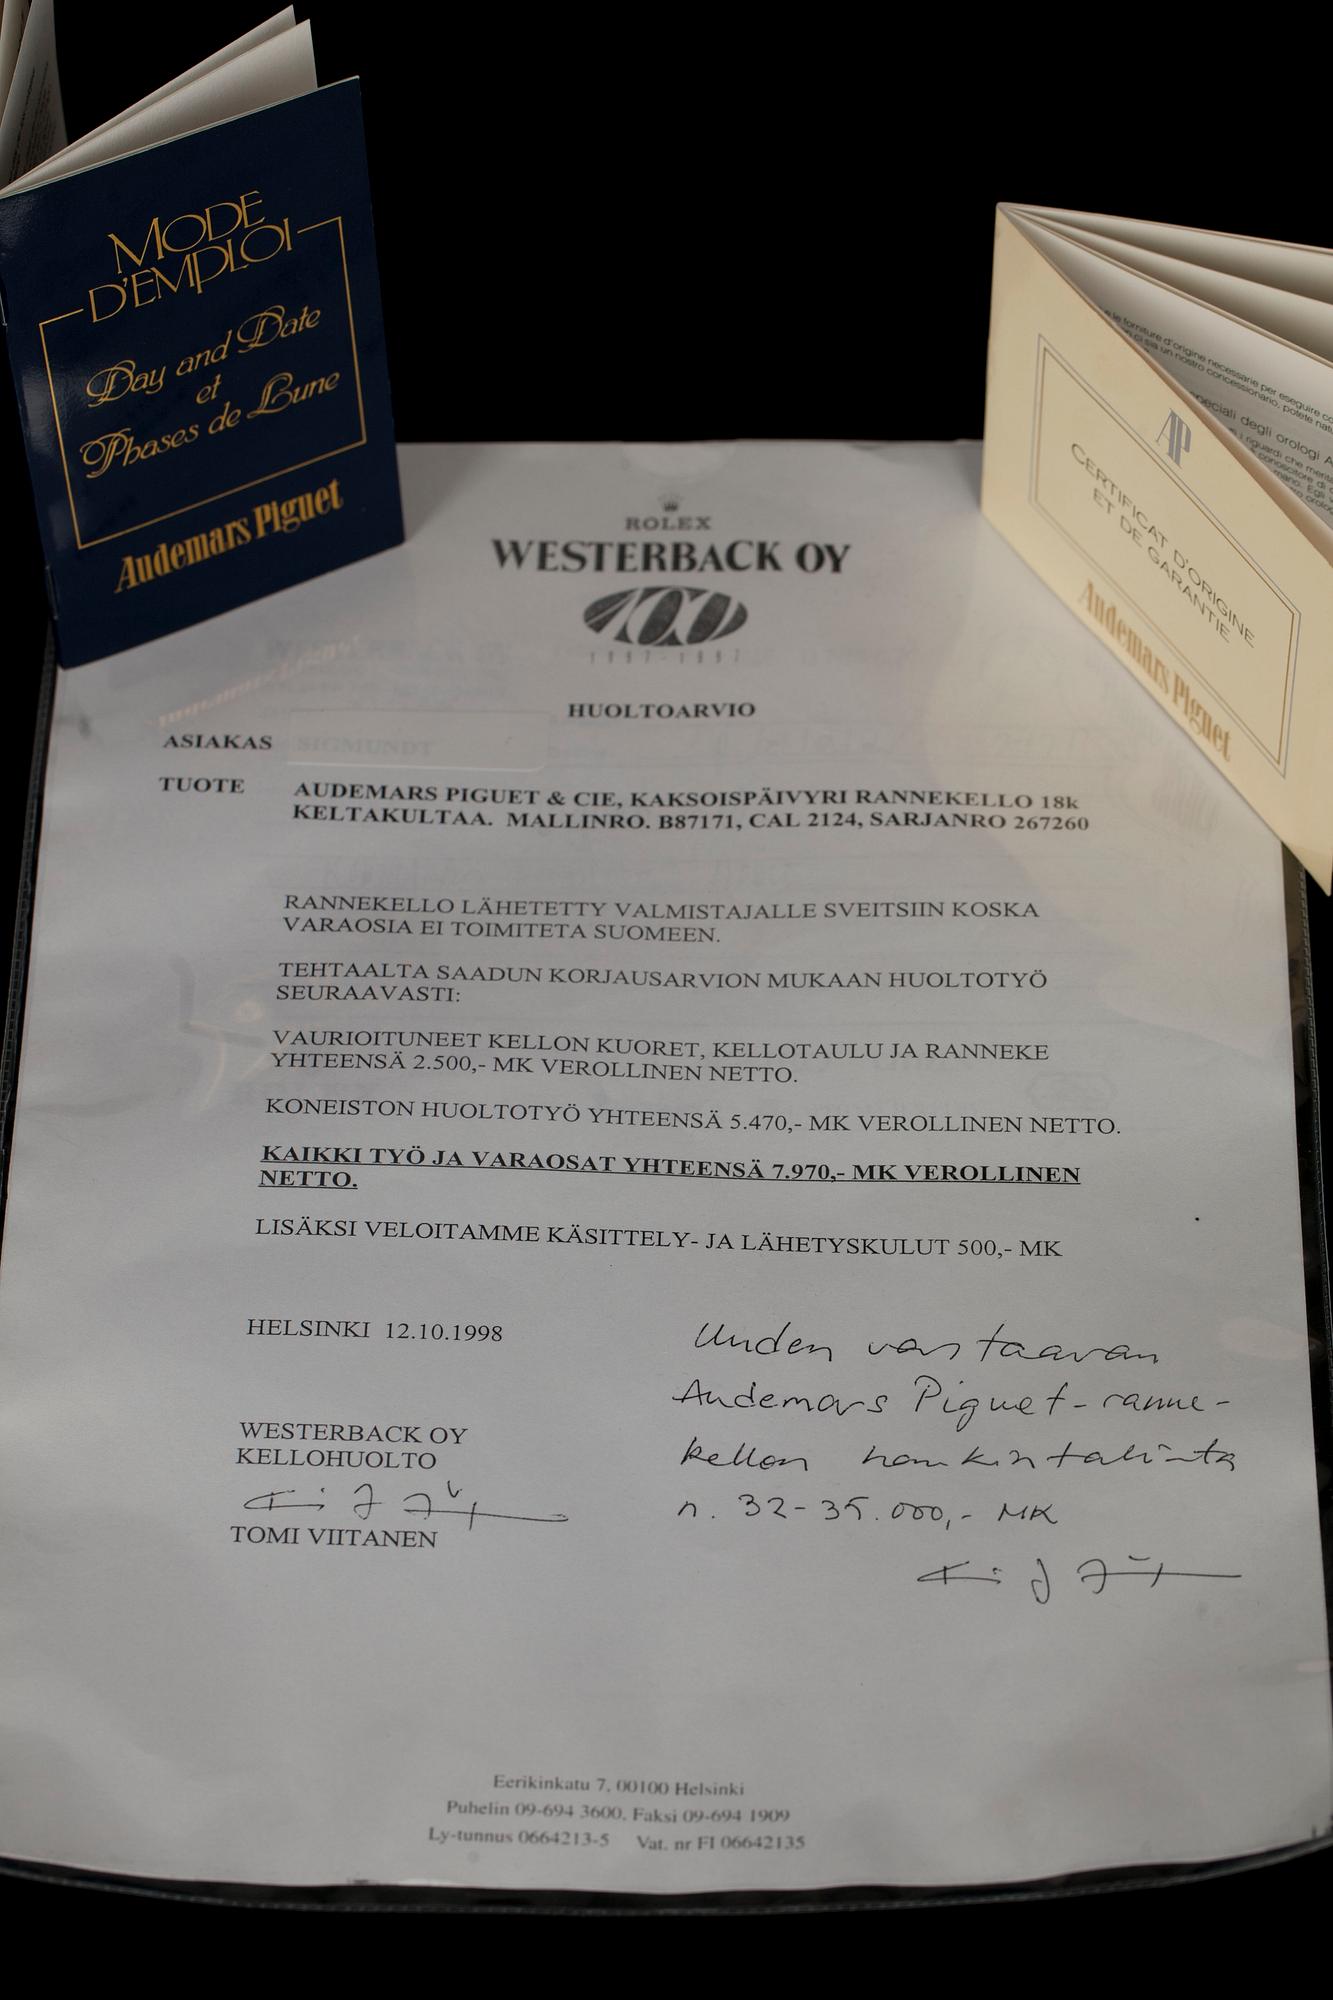 MODE
D'EMPLOI
Day and Date
et
Phases de Lune
Audemars Piguet
e le forniture d'origine necessarie per eseguire
un nostro concessionario, potete
speciali degli orologi A
AP
CERTIFICAT D'ORIGINE
ET DE GARANTIE
Audemars Piguet
ROLEX
WESTERBACK OY
100
1897-1997
HUOLTOARVIO
ASIAKAS SIGMUNDT
TUOTE AUDEMARS PIGUET & CIE, KAKSOISPÄIVYRI RANNEKELLO 18k
KELTAKULTAA. MALLINRO. B87171, CAL 2124, SARJANRO 267260
RANNEKELLO LÄHETETTY VALMISTAJALLE SVEITSIIN KOSKA
VARAOSIA EI TOIMITETA SUOMEEN.
TEHTAALTA SAADUN KORJAUSARVION MUKAAN HUOLTOTYÖ
SEURAAVASTI:
VAURIOITUNEET KELLON KUORET, KELLOTAULU JA RANNEKE
YHTEENSÄ 2.500,- MK VEROLLINEN NETTO.
KONEISTON HUOLTOTYÖ YHTEENSÄ 5.470,- MK VEROLLINEN NETTO.
KAIKKI TYÖ JA VARAOSAT YHTEENSÄ 7.970,- MK VEROLLINEN
NETTO.
LISÄKSI VELOITAMME KÄSITTELY- JA LÄHETYSKULUT 500,- MK
HELSINKI 12.10.1998
WESTERBACK OY
KELLOHUOLTO
TOMI VIITANEN
Uuden vastaavan
Audemars Piguet-ranne-
kellon hankintahinta
n. 32-35.000,- MK
Eerikinkatu 7, 00100 Helsinki
Puhelin 09-694 3600, Faksi 09-694 1909
Ly-tunnus 0664213-5 Vat. nr FI 06642135